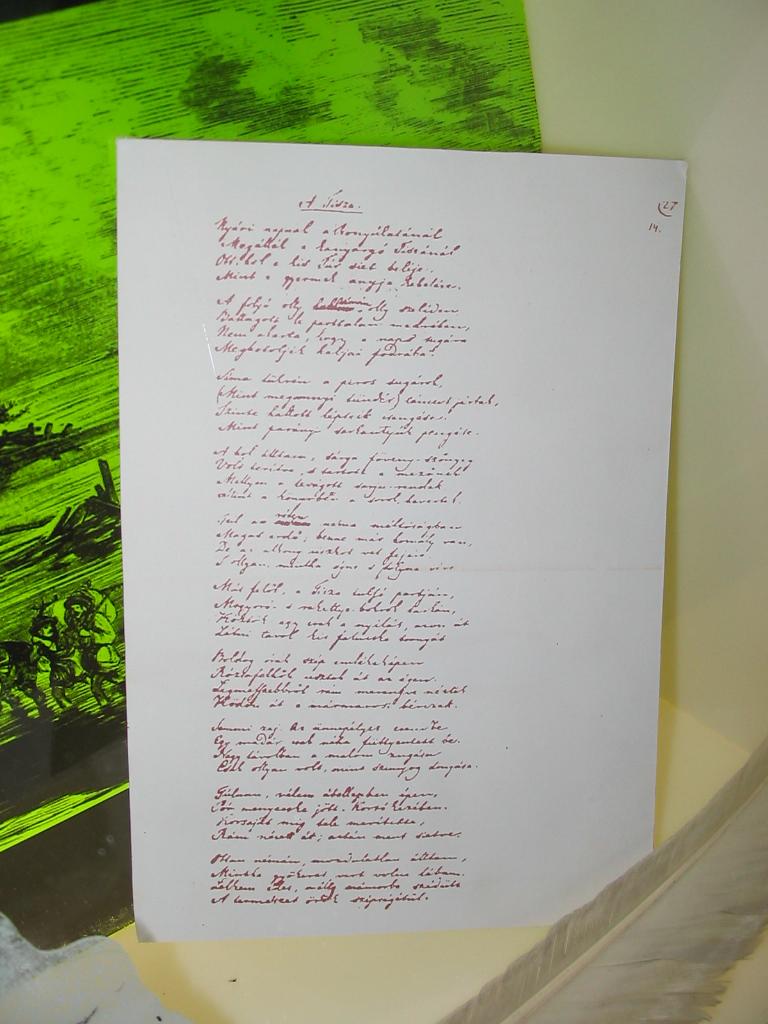 A Tisza.
27
14.
Nyári napnak alkonyúlatánál
Megállék a kanyargó Tiszánál
Ott, hol a kis Túr siet beléje,
Mint a gyermek anyja kebelére.
A folyó olly simán, olly szeliden
Ballagott le parttalan medrében,
Nem akarta, hogy a nap sugára
Megbotoljék habjai fodrába!
Síma tükrén a piros sugárok,
(Mint megannyi tündér) táncot jártak,
Szinte hallott lépteik csengése,
Mint parányi sarkantyúk pengése.
A hol álltam, sárga föveny-szőnyeg
Volt terítve, s tartott a mezőnek,
Mellyen a levágott sarju-rendek
Mint a könyvben a sorok, hevertek.
Túl a réten néma méltóságban
Magas erdő; benne már homály van,
De az alkony üszköt vet fejére
S ollyan, mintha égne s folyna vére.
Más felől, a Tisza tulsó partján,
Mogyoró- s rekettye-bokrok tarkán,
Köztök egy csak a nyilás, azon át
Látni távol kis falucska tornyát
Boldog órák szép emlékeképen
Rózsafelhők usztak át az égen.
Legmesszebbről rám merengve néztek
Ködön át a mármarosi bérczek.
Semmi zaj. Az ünnepélyes csendbe
Egy madár csak néha füttyentett be.
Nagy távolban a malom zugása
Csak ollyan volt, mint szunyog dongása.
Túlnan, vélem átellenben épen,
Pór menyecske jött. Korsó kezében.
Korsaját mig tele meritette,
Rám nézett át; aztán ment sietve.
Ottan némán, mozdulatlan álltam,
Mintha gyökeret vert volna lábam.
Lelkem édes, mélly mámorba szédült
A természet örök szépségétül.